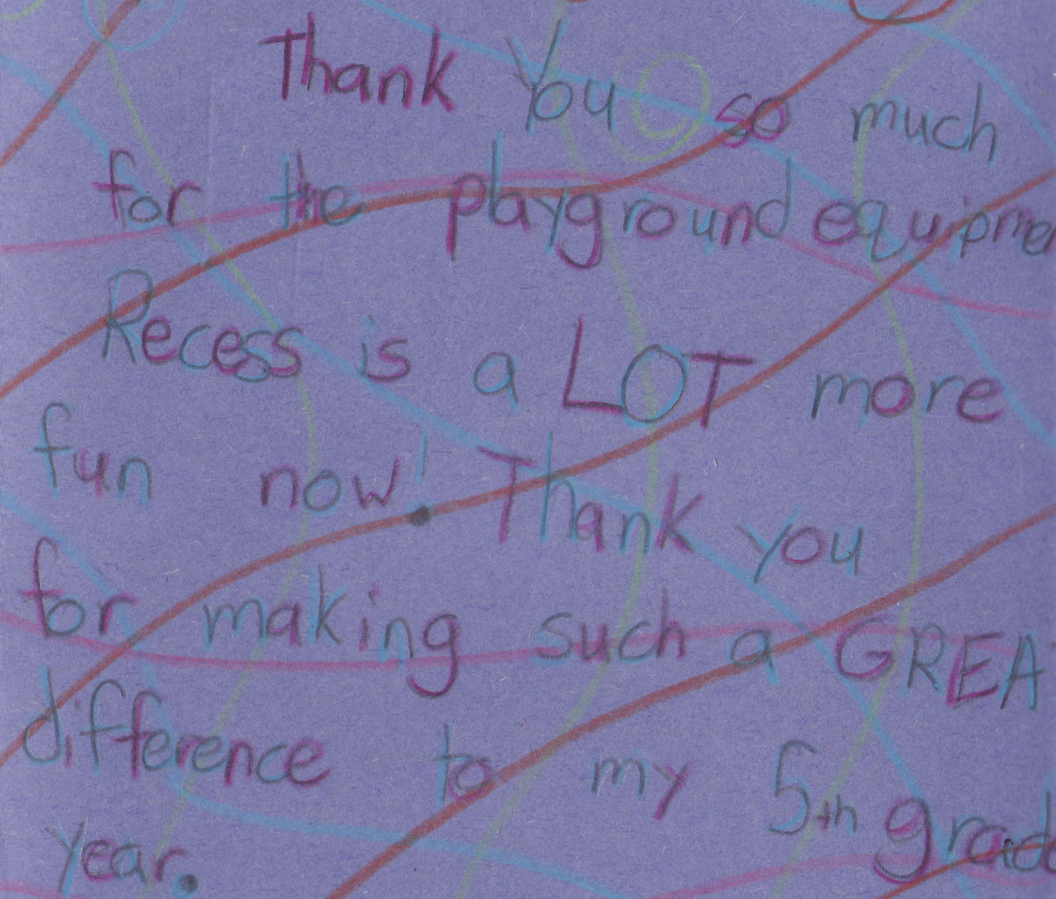 Thank You so much
for the playground equipme
Recess is a LOT more
fun now! Thank you
for making such a GREA
difference to my 5th grad
year.